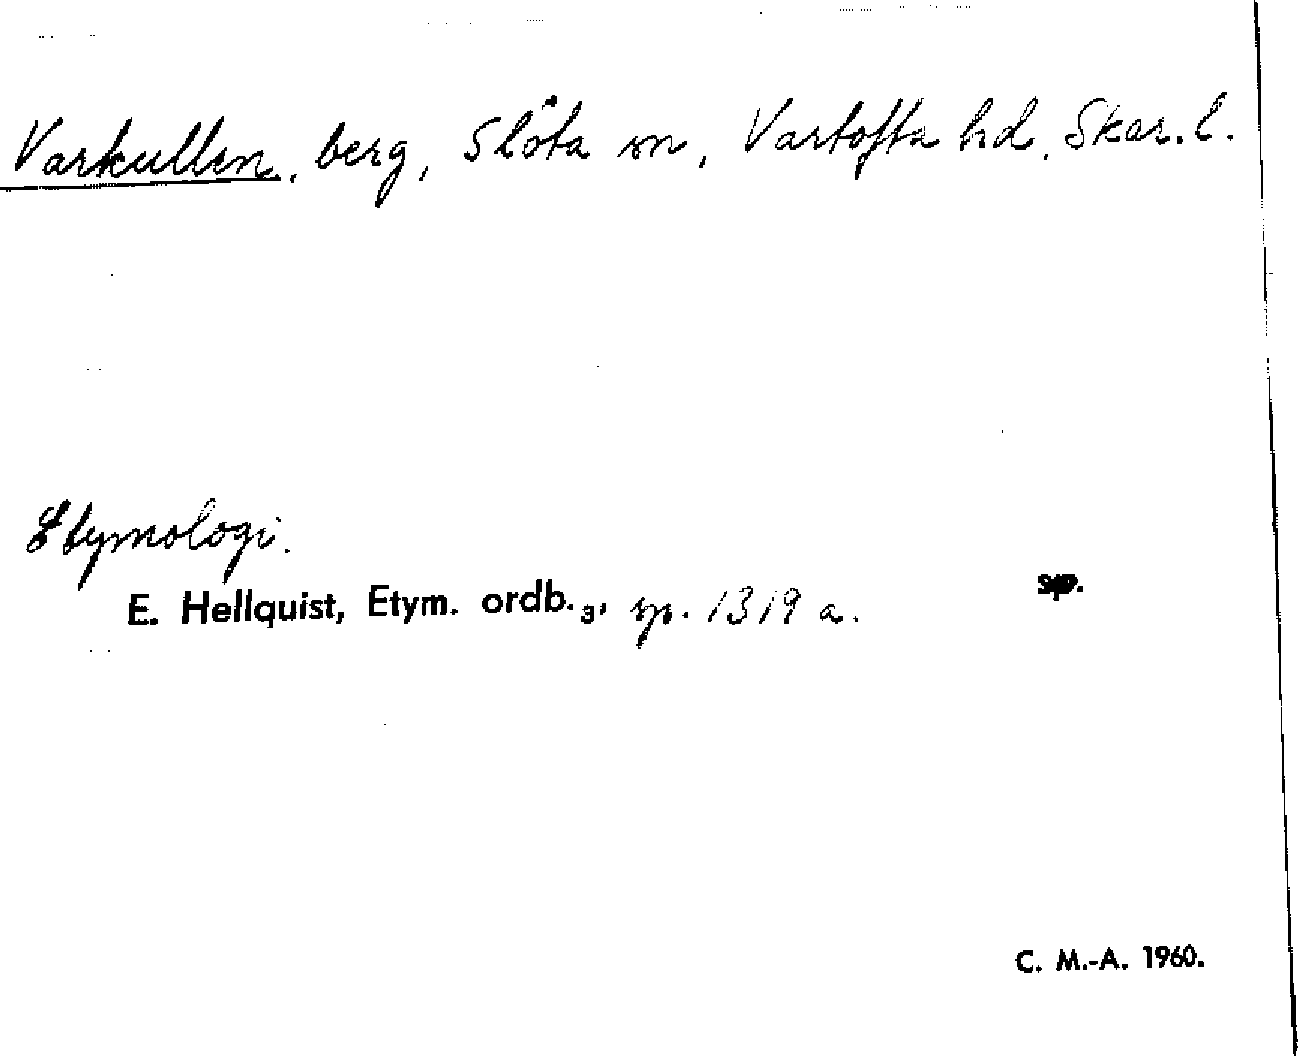 Varkullen, berg, Slöta sn, Vartofta hd, Skar. l.
Etymologi.
E. Hellquist, Etym. ordb.₃, sp. 1319 a. sp.
C. M.-A. 1960.